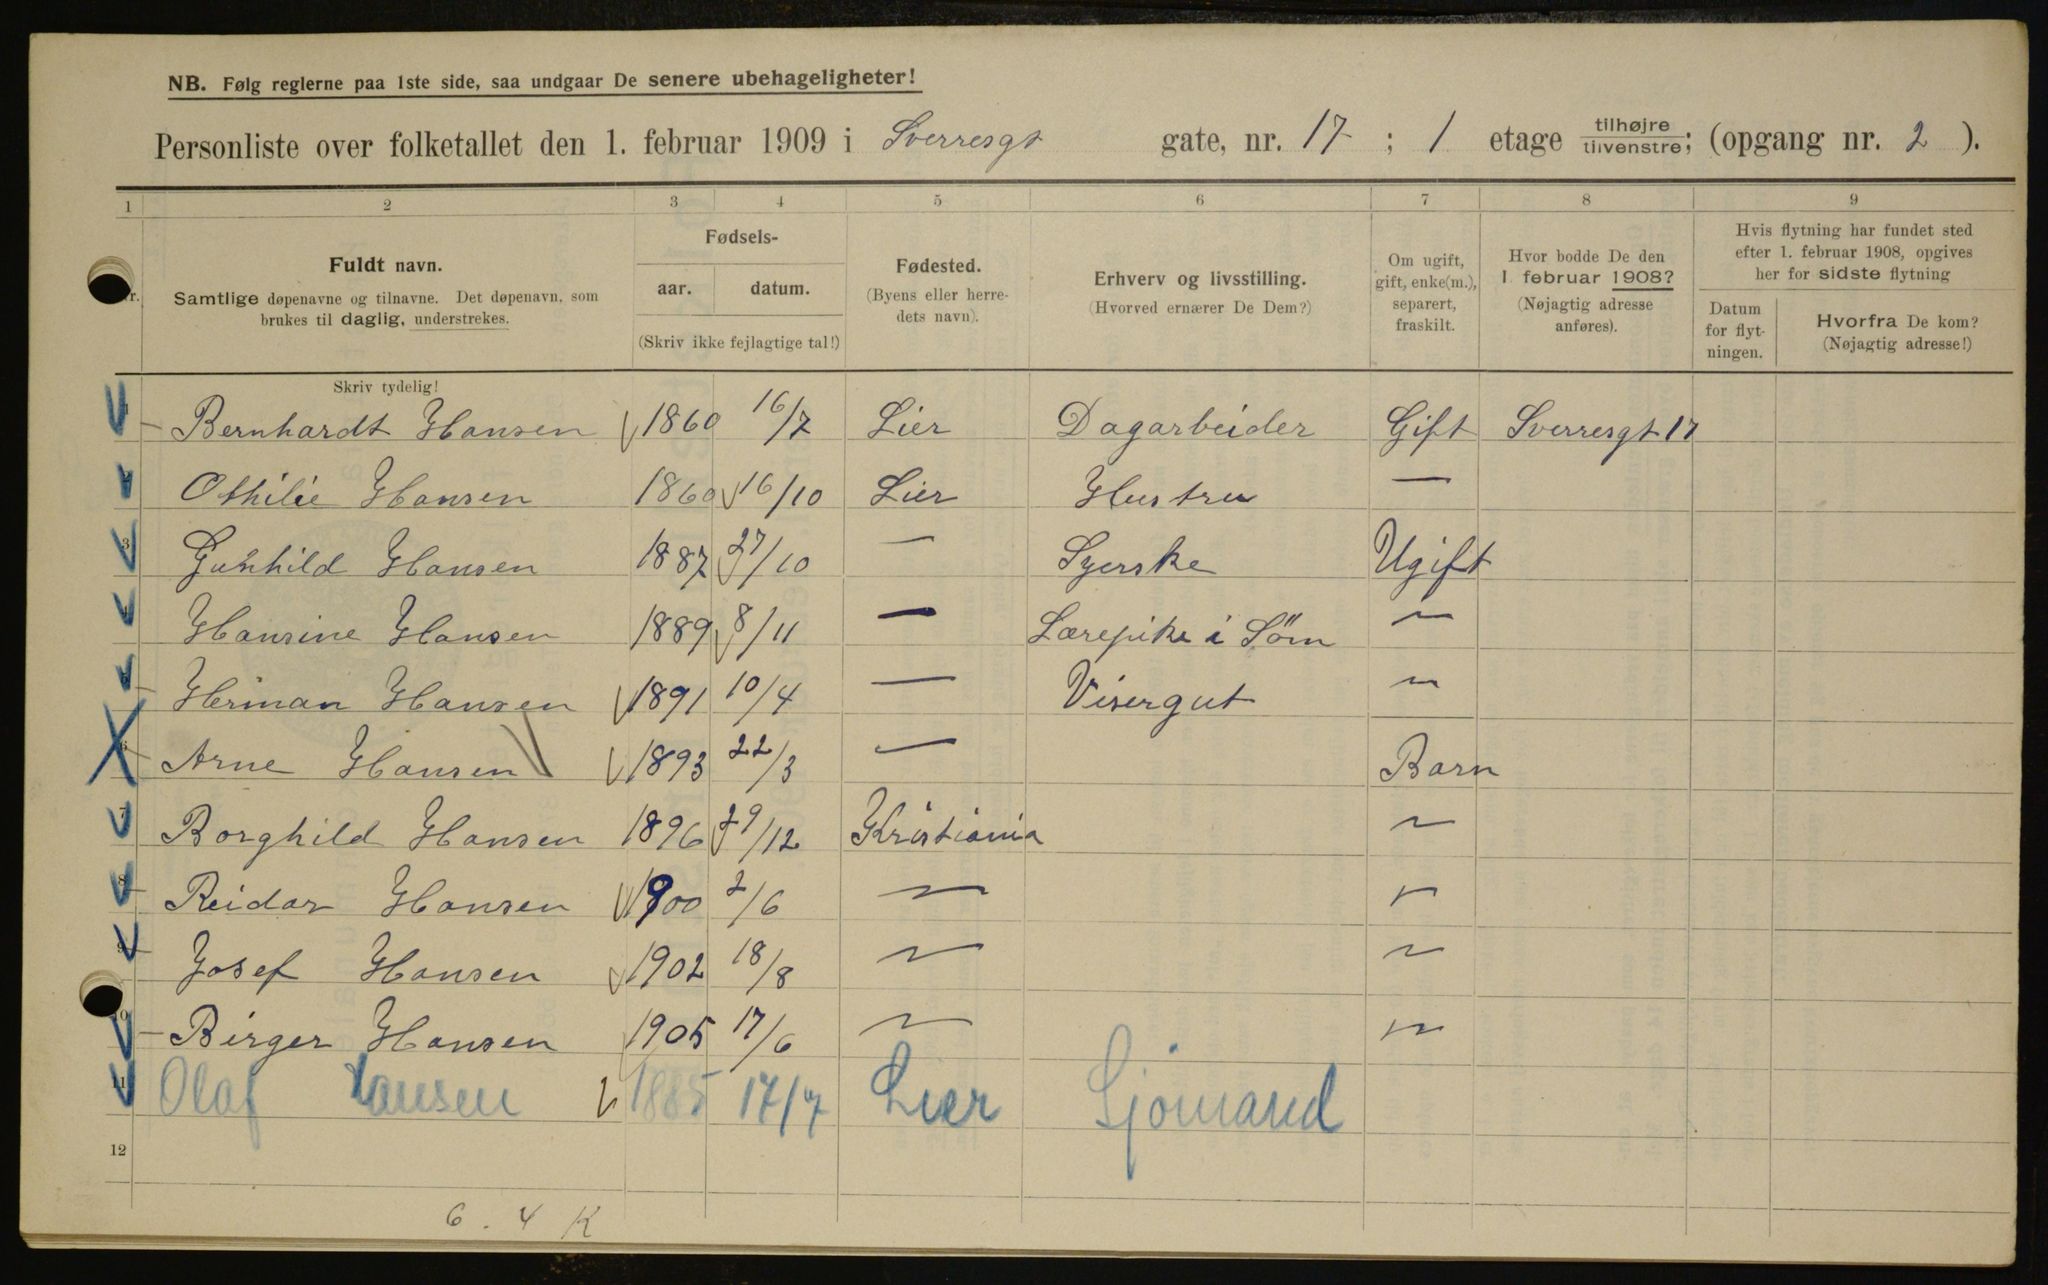 NB. Følg reglerne paa 1ste side, saa undgaar De senere ubehageligheter!
Personliste over folketallet den 1. februar 1909 i Sverresgt gate, nr. 17 ; 1 etage tilhøjre tilvenstre; (opgang nr. 2 ).
1 2 3 4 5 6 7 8 9
Nr.
Fuldt navn.
Samtlige døpenavne og tilnavne. Det døpenavn, som
brukes til daglig, understrekes.
Skriv tydelig!
Fødsels-
aar. datum.
(Skriv ikke fejlagtige tal!)
Fødested.
(Byens eller herre-
dets navn).
Erhverv og livsstilling.
(Hvorved ernærer De Dem?)
Om ugift,
gift, enke(m.),
separert,
fraskilt.
Hvor bodde De den
1 februar 1908?
(Nøjagtig adresse
anføres).
Hvis flytning har fundet sted
efter 1. februar 1908, opgives
her for sidste flytning
Datum
for flyt-
ningen.
Hvorfra De kom?
(Nøjagtig adresse!)
1 Bernhardt Hansen 1860 16/7 Lier Dagarbeider Gift Sverresgt 17
2 Othilie Hansen 1860 16/10 Lier Hustru —
3 Gunhild Hansen 1887 27/10 — Syerske Ugift
4 Hansine Hansen 1889 8/11 — Lærepike i Søm —
5 Herman Hansen 1891 10/4 — Visergut —
6 Arne Hansen 1893 22/3 — Barn
7 Borghild Hansen 1896 29/12 Kristiania —
8 Reidar Hansen 1900 2/6 — —
9 Josef Hansen 1902 18/8 — —
10 Birger Hansen 1905 17/6 — —
11 Olaf Hansen 1885 17/7 Lier Sjømand
12
6 . 4 K